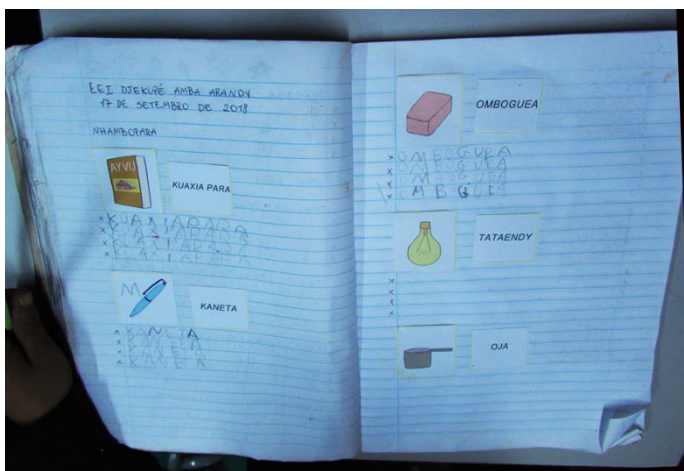 EEI DJEKUPÉ AMBA ARANDY
17 DE SETEMBRO DE 2018
NHAMBOPARA
AYVU
KUAXIA PARA
× KUAXIAPARA
× KUAXIAPARA
× KUAXIAPARA
× KUAXIAPARA
M
KANETA
× KANETA
× KANETA
× KANETA
× KANETA
OMBOGUEA
× OMBOGUEA
× OMBOGUEA
× OMBOGUEA
× OMBOGUEA
TATAENDY
×
×
×
×
OJA